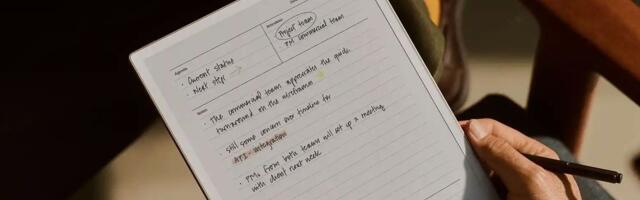 Agenda
• Current status
• Next steps
Attendees
Project team
PM commercial team
Notes
• The commercial team appreciates the quick
turnaround on the wireframes
• still some concern over timeline for
API - integration
• PMs from both teams will set up a meeting
with client next week